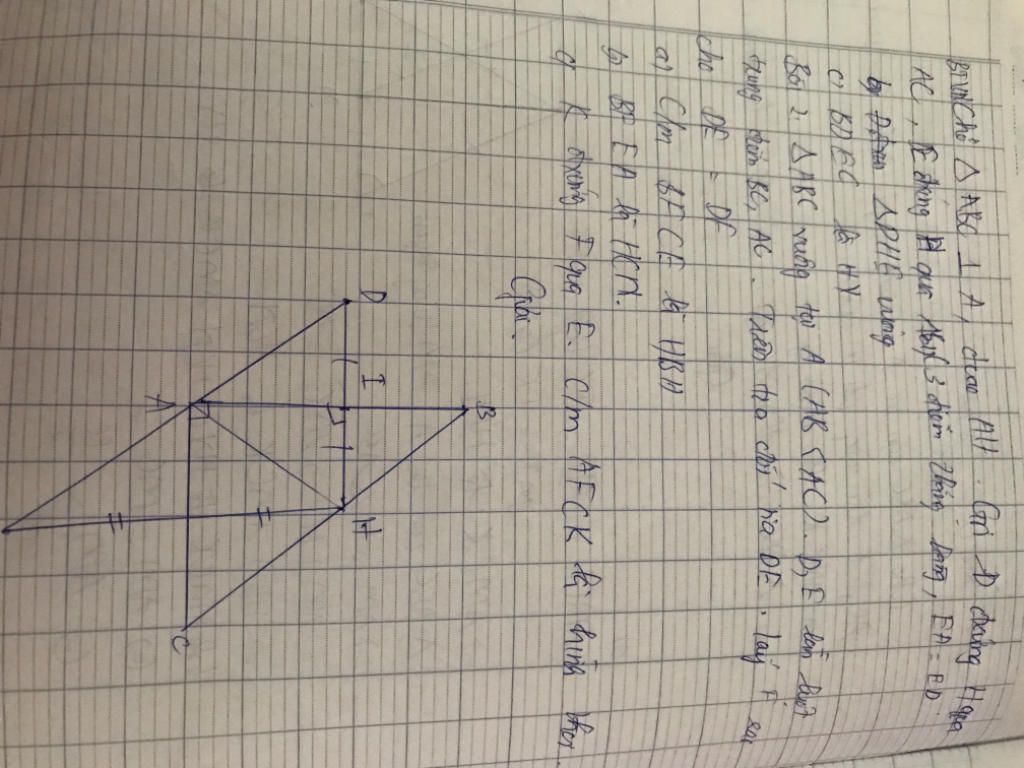 Cho Δ ABC ⊥ A, đcao AH. Gọi D đxứng H qua
AC, E đxứng H qua 3 điểm thẳng hàng, EA = ED
b, Δ DHE vuông
c, BDEC là HT
Bài 2 Δ ABC vuông tại A (AB < AC). D, E lần lượt
trung điểm BC, AC. Trên tia đối tia DE. lấy F sao
cho DE = DF
a) C/m BECF là HBH
b, BFEA là HCN.
c, K đxứng F qua E. C/m AFCK là hình thoi.
Giải.
D
I
B
A
H
C